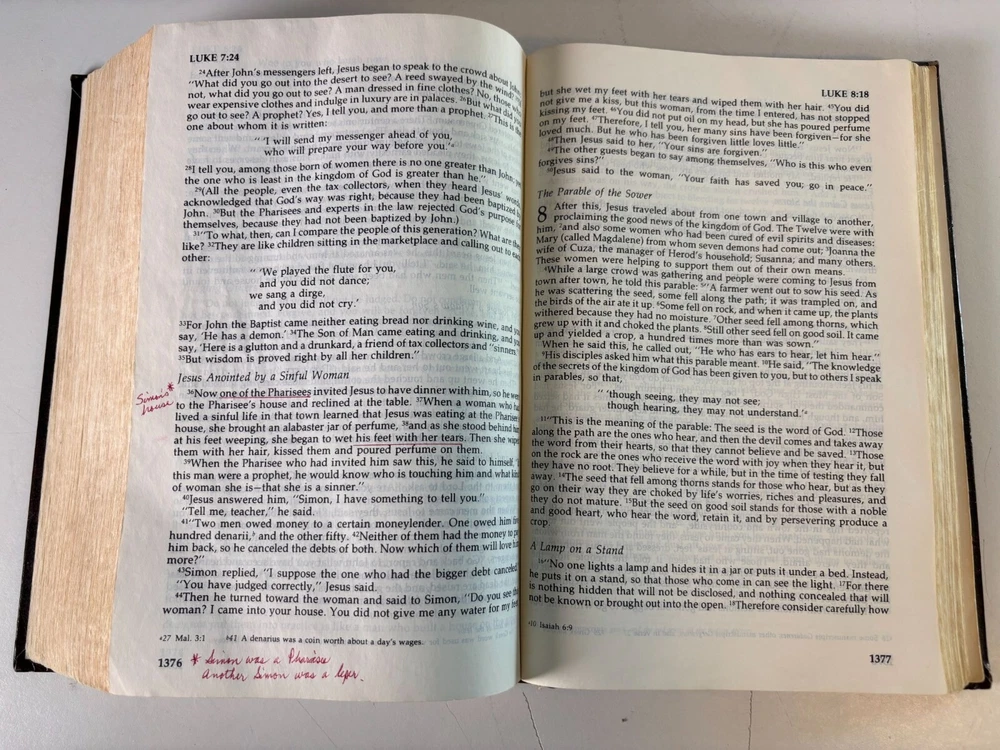 LUKE 7:24
²⁴After John's messengers left, Jesus began to speak to the crowd about John:
"What did you go out into the desert to see? A reed swayed by the wind?
not, what did you go out to see? A man dressed in fine clothes? No, those who
wear expensive clothes and indulge in luxury are in palaces. ²⁶But what did you
go out to see? A prophet? Yes, I tell you, and more than a prophet. ²⁷This is the
one about whom it is written:
" 'I will send my messenger ahead of you,
who will prepare your way before you.'ᵃ
²⁸I tell you, among those born of women there is no one greater than John; yet
the one who is least in the kingdom of God is greater than he."
²⁹(All the people, even the tax collectors, when they heard Jesus' words,
acknowledged that God's way was right, because they had been baptized by
John. ³⁰But the Pharisees and experts in the law rejected God's purpose for
themselves, because they had not been baptized by John.)
³¹"To what, then, can I compare the people of this generation? What are they
like? ³²They are like children sitting in the marketplace and calling out to each
other:
" 'We played the flute for you,
and you did not dance;
we sang a dirge,
and you did not cry.'
³³For John the Baptist came neither eating bread nor drinking wine, and you
say, 'He has a demon.' ³⁴The Son of Man came eating and drinking, and you
say, 'Here is a glutton and a drunkard, a friend of tax collectors and "sinners."'
³⁵But wisdom is proved right by all her children."
Jesus Anointed by a Sinful Woman
Simon's *
house
³⁶Now one of the Pharisees invited Jesus to have dinner with him, so he went
to the Pharisee's house and reclined at the table. ³⁷When a woman who had
lived a sinful life in that town learned that Jesus was eating at the Pharisee's
house, she brought an alabaster jar of perfume, ³⁸and as she stood behind him
at his feet weeping, she began to wet his feet with her tears. Then she wiped
them with her hair, kissed them and poured perfume on them.
³⁹When the Pharisee who had invited him saw this, he said to himself, "If
this man were a prophet, he would know who is touching him and what kind
of woman she is—that she is a sinner."
⁴⁰Jesus answered him, "Simon, I have something to tell you."
"Tell me, teacher," he said.
⁴¹"Two men owed money to a certain moneylender. One owed him five
hundred denarii,ᵇ and the other fifty. ⁴²Neither of them had the money to pay
him back, so he canceled the debts of both. Now which of them will love him
more?"
⁴³Simon replied, "I suppose the one who had the bigger debt canceled."
"You have judged correctly," Jesus said.
⁴⁴Then he turned toward the woman and said to Simon, "Do you see this
woman? I came into your house. You did not give me any water for my feet,
ᵃ27 Mal. 3:1 ᵇ41 A denarius was a coin worth about a day's wages.
1376
* Simon was a Pharisee
Another Simon was a leper.
LUKE 8:18
but she wet my feet with her tears and wiped them with her hair. ⁴⁵You did
not give me a kiss, but this woman, from the time I entered, has not stopped
kissing my feet. ⁴⁶You did not put oil on my head, but she has poured perfume
on my feet. ⁴⁷Therefore, I tell you, her many sins have been forgiven—for she
loved much. But he who has been forgiven little loves little."
⁴⁸Then Jesus said to her, "Your sins are forgiven."
⁴⁹The other guests began to say among themselves, "Who is this who even
forgives sins?"
⁵⁰Jesus said to the woman, "Your faith has saved you; go in peace."
The Parable of the Sower
8 After this, Jesus traveled about from one town and village to another,
proclaiming the good news of the kingdom of God. The Twelve were with
him, ²and also some women who had been cured of evil spirits and diseases:
Mary (called Magdalene) from whom seven demons had come out; ³Joanna the
wife of Cuza, the manager of Herod's household; Susanna; and many others.
These women were helping to support them out of their own means.
⁴While a large crowd was gathering and people were coming to Jesus from
town after town, he told this parable: ⁵"A farmer went out to sow his seed. As
he was scattering the seed, some fell along the path; it was trampled on, and
the birds of the air ate it up. ⁶Some fell on rock, and when it came up, the plants
withered because they had no moisture. ⁷Other seed fell among thorns, which
grew up with it and choked the plants. ⁸Still other seed fell on good soil. It came
up and yielded a crop, a hundred times more than was sown."
When he said this, he called out, "He who has ears to hear, let him hear."
⁹His disciples asked him what this parable meant. ¹⁰He said, "The knowledge
of the secrets of the kingdom of God has been given to you, but to others I speak
in parables, so that,
" 'though seeing, they may not see;
though hearing, they may not understand.'ᵃ
¹¹"This is the meaning of the parable: The seed is the word of God. ¹²Those
along the path are the ones who hear, and then the devil comes and takes away
the word from their hearts, so that they cannot believe and be saved. ¹³Those
on the rock are the ones who receive the word with joy when they hear it, but
they have no root. They believe for a while, but in the time of testing they fall
away. ¹⁴The seed that fell among thorns stands for those who hear, but as they
go on their way they are choked by life's worries, riches and pleasures, and
they do not mature. ¹⁵But the seed on good soil stands for those with a noble
and good heart, who hear the word, retain it, and by persevering produce a
crop.
A Lamp on a Stand
¹⁶"No one lights a lamp and hides it in a jar or puts it under a bed. Instead,
he puts it on a stand, so that those who come in can see the light. ¹⁷For there
is nothing hidden that will not be disclosed, and nothing concealed that will
not be known or brought out into the open. ¹⁸Therefore consider carefully how
ᵃ10 Isaiah 6:9
1377